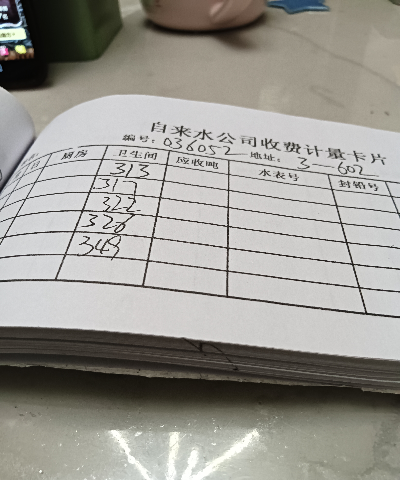 自来水公司收费计量卡片
编号: 036052 地址: 3—602
厨房 卫生间 应收吨 水表号 封铅号
313
317
322
328
349